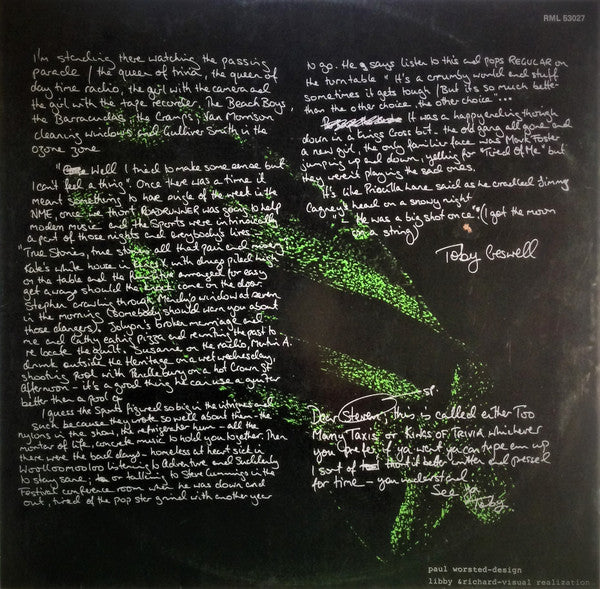 RML 53027
I'm standing there watching the passing
parade / the queen of trivia, the queen of
day time radio, the girl with the camera and
the girl with the tape recorder. The Beach Boys,
the Barracudas, the Cramps, Van Morrison
cleaning windows and Gulliver Smith in the
ozone zone
"Well I tried to make some sense but
I can't feel a thing". Once there was a time it
meant something to have single of the week in the
NME, once we thort ROADRUNNER was going to help
modern music and the Sports were intrinsically
a part of those nights and everybody's lives.
"True Stories, true stories all that pain and misery"
Kate's white house in with drugs piled high
on the table and the arranged for easy
get aways should the come on the door.
Stephen crawling through Mandy's window at seven
in the morning (Somebody should warn you about
those dangers). Solyon's broken marriage and
me and Cathy eating pizza and running the past to
re locate the guilt. Susanne on the radio, Martin A.
drunk outside the Heritage on a wet wednesday,
shooting pool with Pendlebury on a hot Crown St
afternoon - it's a good thing he can use a guitar
better than a pool q
I guess the Sports figured so big in the wins and
such because they wrote so well about them - the
nylons in the shower, the refrigerator hum - all the
mortar of life, concrete music to hold you together. Then
there were the bad days - homeless at heart sick in
Woolloomooloo listening to Adventure and Suddenly
to stay sane; or talking to Steve Cummings in the
Festival conference room when he was down and
out, tired of the pop star grind with another year
to go. He says listen to this and pops REGULAR on
the turntable "It's a crumby world and stuff
sometimes it gets tough / But its so much better
than the other choice, the other choice"...
It was a happy ending though
down in a kings Cross but - the old gang all gone and
a new girl, the only familiar face was Mark Foster
jumping up and down, yelling for "Tired Of Me" but
they weren't playing the sad ones.
It's like Priscilla Lane said as she cradled Jimmy
Cagney's head on a snowy night
"He was a big shot once" (I got the moon
on a string)
Toby Creswell
sp.
Dear Steven, this is called either Too
Many Taxis or Kings of Trivia whichever
you prefer if you want you can type em up
I sort of thort it better written and pressed
for time - you understand
See ya
Toby.
paul worsted-design
libby &richard-visual realization